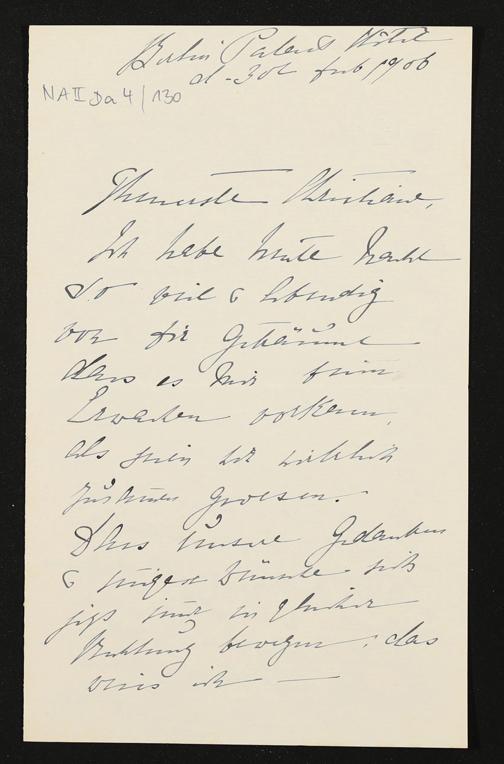 Berlin Palast Hotel
d. 30t 1906
NA II Da 4/130
Theuerste Christiane,
Ich habe heute Nacht
so viel & lebendig
von dir geträumt
dass es mir beim
Erwachen vorkam,
als seien wir wirklich
zusammen gewesen.
Dass unsere Gedanken
& innigen Wünsche sich
jetzt in gleicher
Richtung bewegen, das
weis ich —